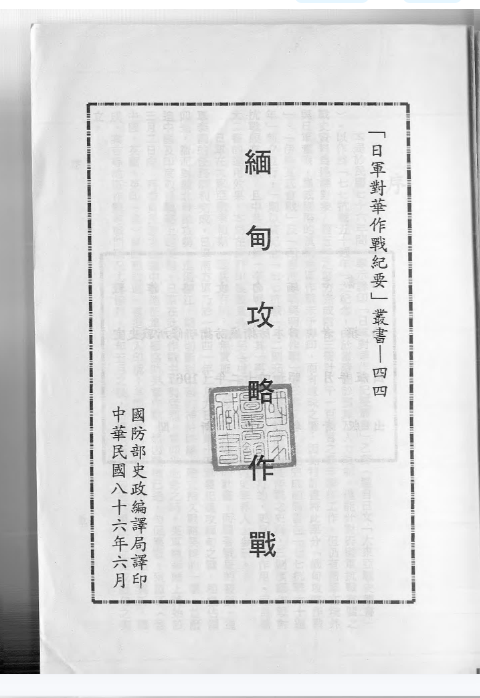 「日軍對華作戰紀要」叢書—四四
緬甸攻略作戰
國防部史政編譯局譯印
中華民國八十六年六月